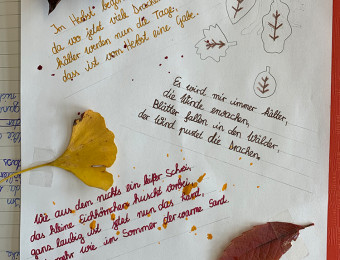 Im Herbst
da wo jetzt viele Drachen
kälter werden nun die Tage,
dass ist vom Herbst eine Gabe.
Es wird mir immer kälter,
die Winde erwachen,
Blätter fallen in den Wälder,
der Wind pustet die Drachen.
Wie aus dem nichts ein Schrei,
das kleine Eichhörnchen huscht vorbei,
ganz laubig ist jetzt nun das Land,
mehr wie im Sommer der warme Sand.